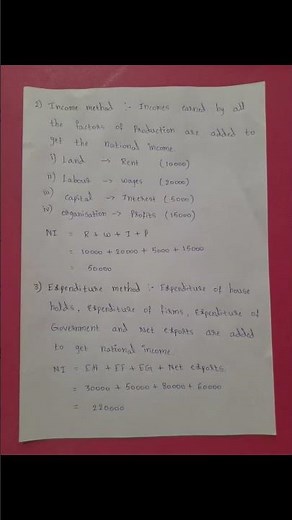 2) Income method :- Incomes earned by all
the factors of Production are added to
get the national income
i) Land → Rent (10000)
ii) Labour → wages (20000)
iii) Capital → Interest (5000)
iv) Organisation → Profits (15000)
NI = R + W + I + P
= 10000 + 20000 + 5000 + 15000
= 50000
3) Expenditure method :- Expenditure of house
holds, Expenditure of firms, Expenditure of
Government and Net exports are added
to get national income
NI = EH + EF + EG + Net exports
= 30000 + 50000 + 80000 + 60000
= 220000